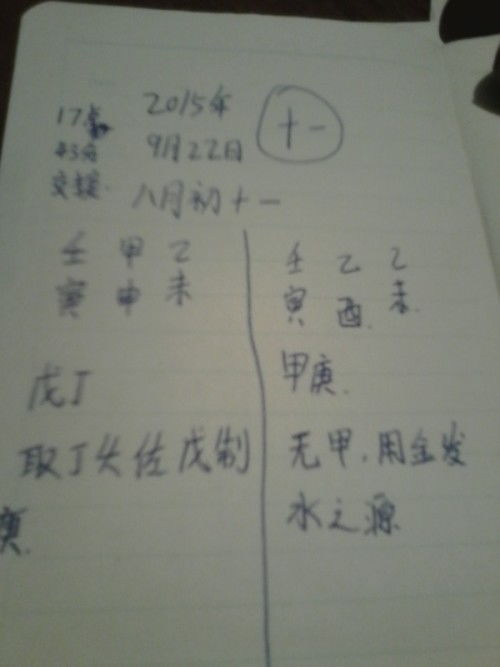 17点
2015年
十一
43分
9月22日
交接
八月初十一
壬 甲 乙
寅 申 未
戊丁
取丁火佐戊制
庚.
壬 乙 乙
寅 酉. 未.
甲庚.
无甲.用金发
水之源